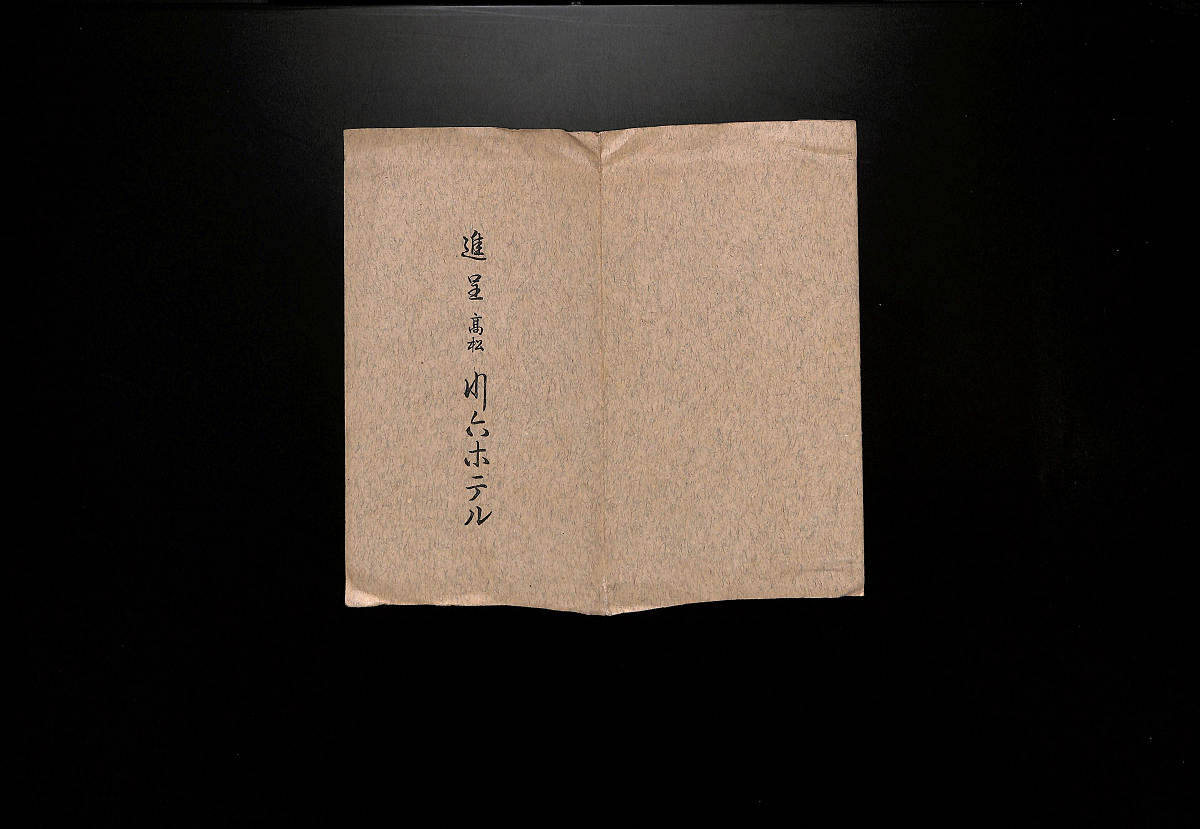 進呈 高松 川六ホテル